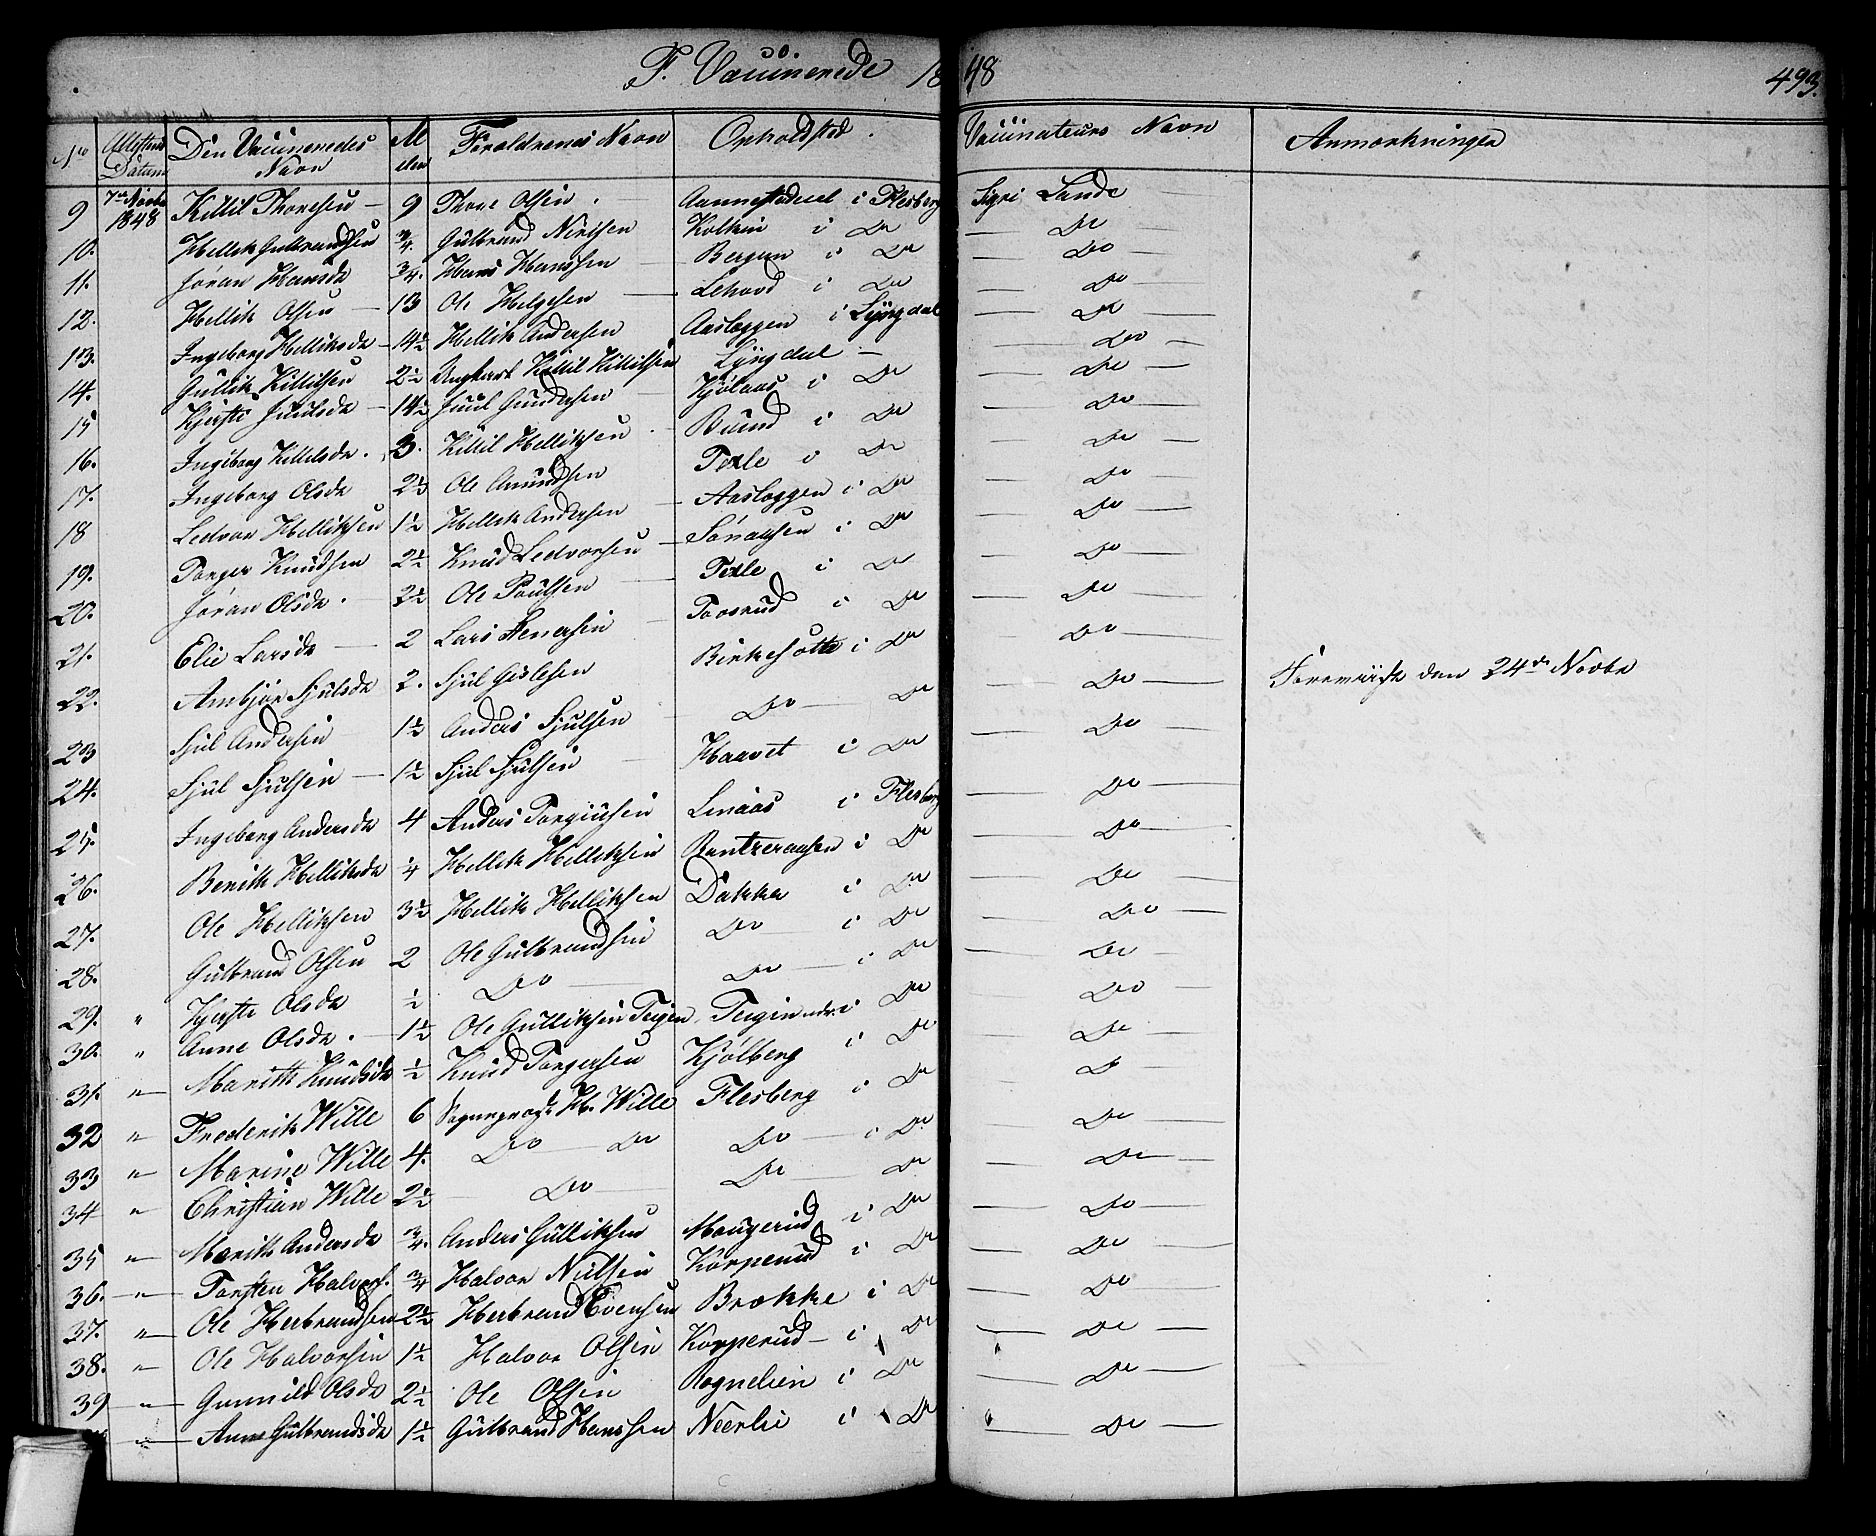 F. Vaccinerede 1848
493.
No Attestens Datum Den Vaccineredes Navn Alder Forældrenes Navn Opholdsted. Vaccinateurs Navn Anmærkninger
9 7de Novbr 1848 Killil Thoresen 9 Thore Olsen. Aannestadeiet i Flesberg Sigri Lande
10. Hellik Gulbrandsen 3/4. Gulbrand Nirisen Kolkin i Do Do
11. Jøran Hansda 3/4. Hans Hanssen Bergan i Do Do
12. Hellik Olsen 13 Ole Helgesen Lehovd i Do Do
13. Ingeborg Helliksda 14 1/2 Hellik Andersen Aasloggen i Lyngdal Do
14. Gullik Killilsen 2 1/2 Ungkarl Killil Killilsen Lyngdal Do
15 Kjersti Juulsda 14 1/2 Juul Gundersen Kjølaas i Do Do
16. Ingeborg Killilsda. 3. Killil Helliksen Buind i Do Do
17. Ingeborg Olsda 2 1/2 Ole Amundsen Texle i Do Do
18 Ledvor Helliksen 1 1/2 Hellik Andersen Aasloggen i Do Do
19. Torger Knudsen 2 1/2 Knud Ledvorsen Sønaasen i Do Do
20. Jøran Olsda. 3 1/2 Ole Poulsen Texle i Do Do
21. Elie Larsda 2 Lars Stenersen Toosrud i Do Do
22. Ambjør Sjulsda 2. Sjul Gislesen Birkesøtte i Do Do
23 Sjul Andersen 1 1/2 Anders Sjulsen Do Do Do Foreviist den 24de Novbr
24. Sjul Sjulsen 1 1/2 Sjul Sjulsen Haavet i Do Do
25. Ingeborg Andersda 4 Anders Torgiusen Linaas i Flesberg Do
26. Berith Helliksda 1/4 Hellik Helliksen Bentzeraasen i Do Do
27. Ole Helliksen 3 1/2 Hellik Helliksen Dokka i Do Do
28. Gulbrand Olsen 2 Ole Gulbrandsen Do i Do Do
29. " Kjersti Olsda 1/2 Do Do i Do Do
30. " Anne Olsda. 1 1/2 Ole Gulliksen Teigen Teigen i Do Do
31. " Marith Knudsda 1/2 Knud Torgersen Kjølberg i Do Do
32 " Frederik Wille 6 Sognepræst H. Wille Flesberg i Do Do
33 " Marine Wille 4. Do Do Do i Do Do
34 " Christian Wille 2 1/2 Do Do Do Do
35 " Marith Andersda 3/4. Anders Gulliksen Maugerud i Do Do
36. " Torsten Halvors. 3/4 Halvor Nielsen Korperud i Do Do
37. " Ole Herbrandsen 2 1/2 Herbrand Evensen Brække i Do Do
38. " Ole Halvorsen 1 1/2 Halvor Olsen Korperud i Do Do
39 " Gunnild Olsda 2 1/2 Ole Olsen Rognelien i Do Do
" Anne Gulbrandsda 1 1/2 Gulbrand Hanssen Neerlie i Do Do